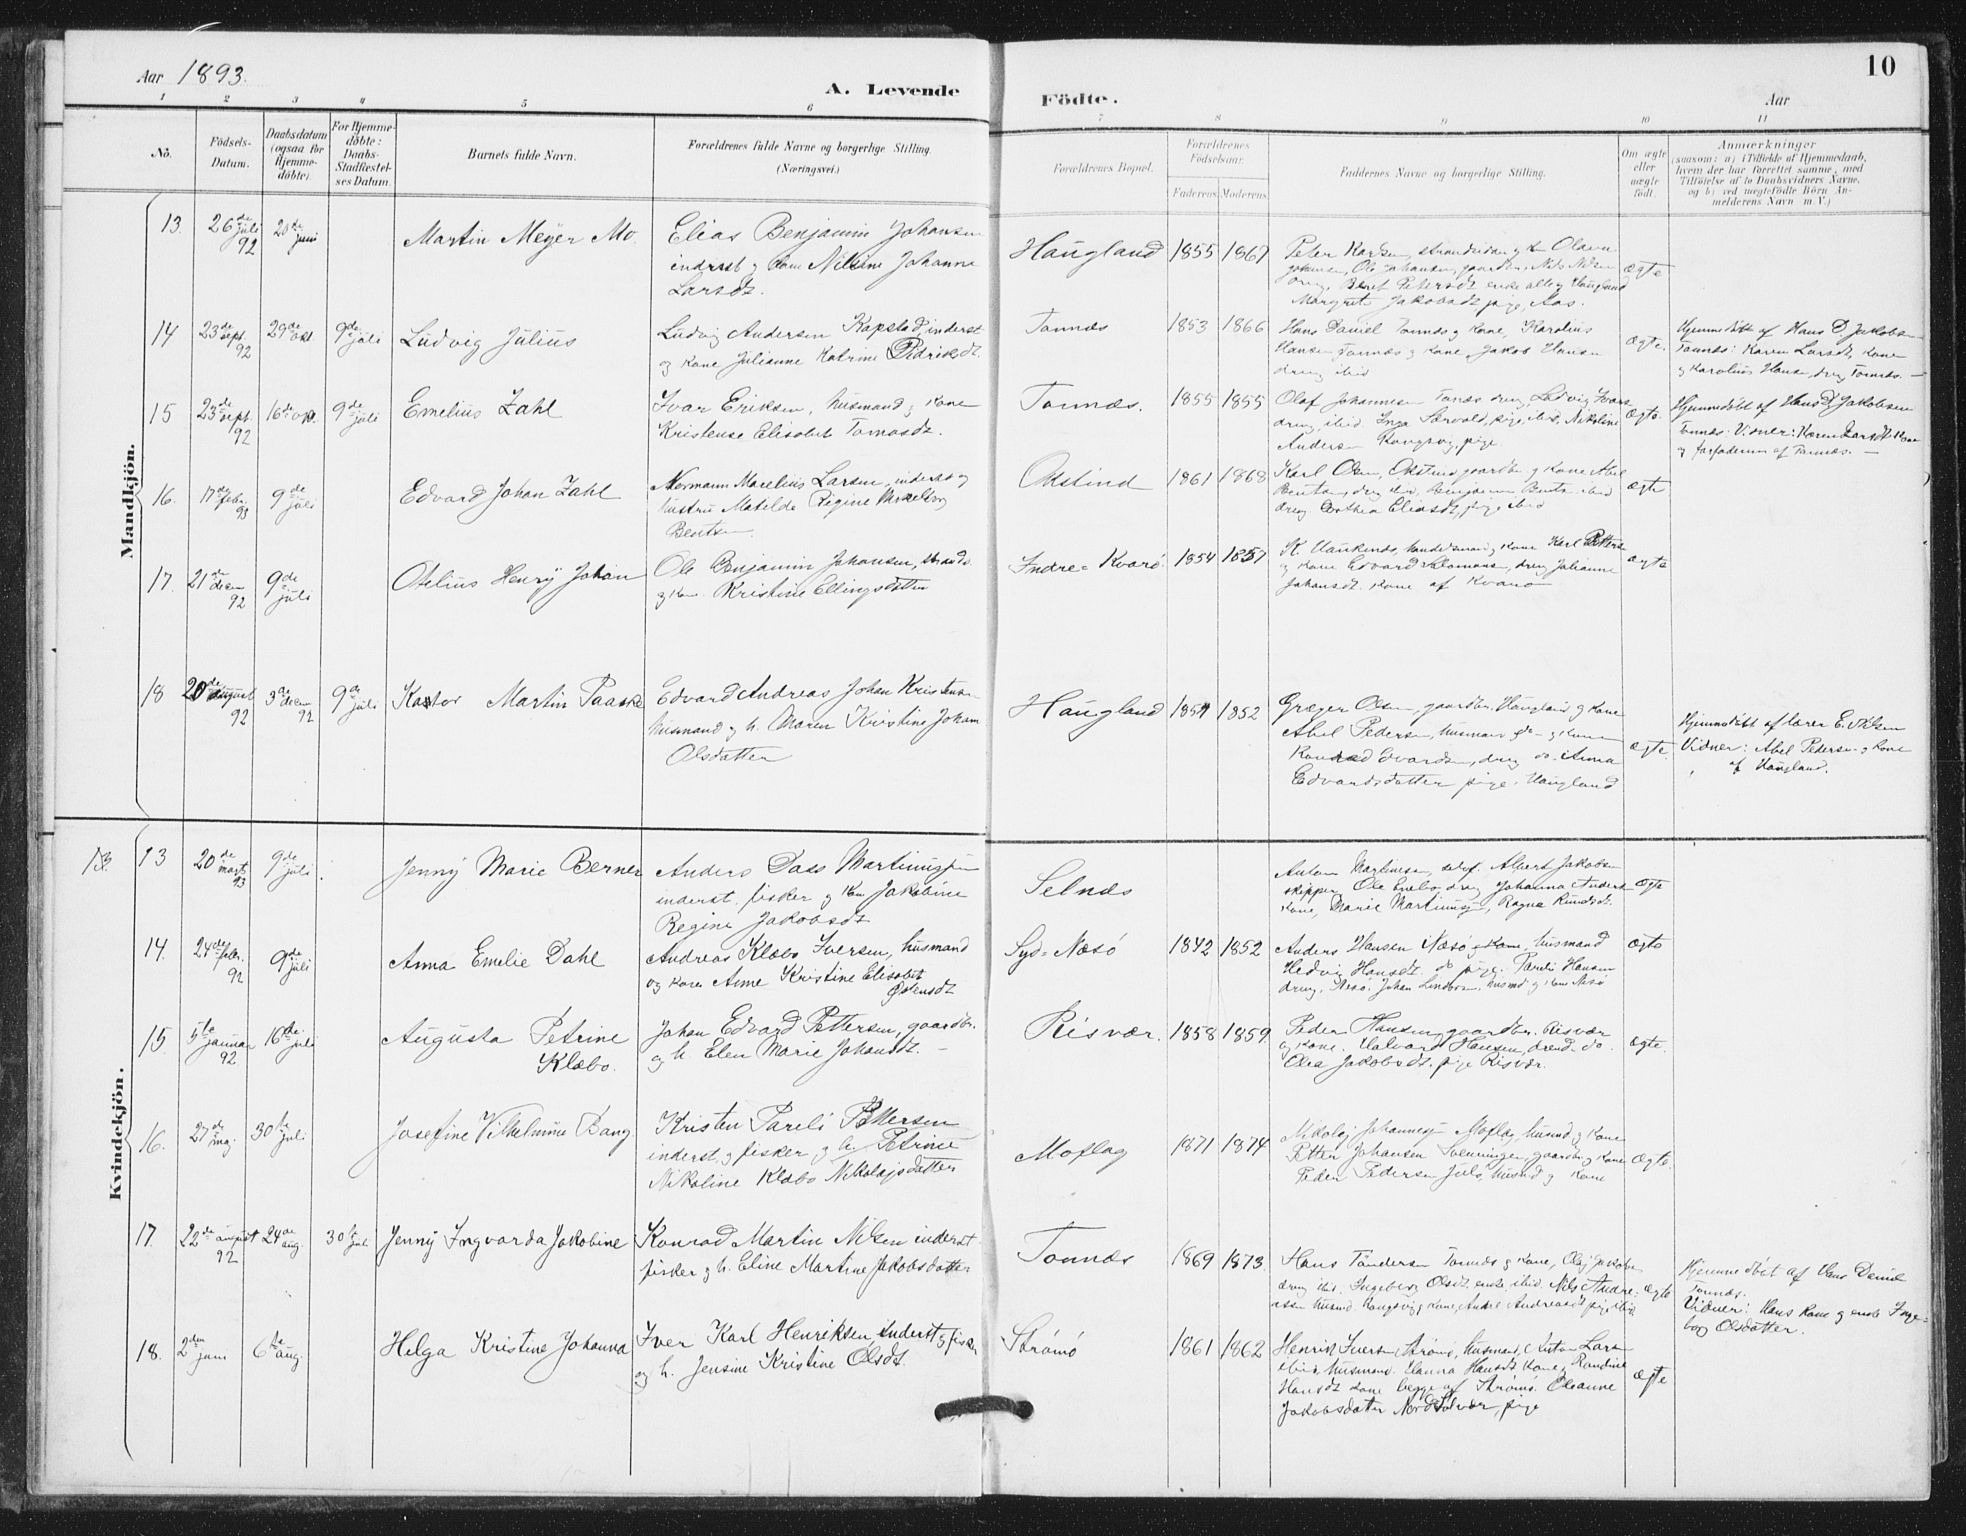 Aar 1893.
A. Levende Födte.
Aar
10
1 2 3 4 5 6 7 8 9 10 11
No.
Födsels-Datum.
Daabsdatum (ogsaa for Hjemme-döbte).
For Hjemme-döbte: Daabs-Stadfæstel-ses Datum.
Barnets fulde Navn.
Forældrenes fulde Navne og borgerlige Stilling.
(Næringsvei.)
Forældrenes Bopæl.
Forældrenes Födselsaar.
Faderens. Moderens.
Faddernes Navne og borgerlige Stilling.
Om ægte eller uægte födt.
Anmærkninger
(saasom: a) i Tilfælde af Hjemmedaab,
hvem der har forrettet samme, med
Tilföielse af to Daabsvidners Navne,
og b) ved uægtefödte Börn An-
melderens Navn m. V.)
Mandkjön.
13. 26de juli 92 20de juni Martin Meyer Mo.
Elias Benjamin Johansen
inderst og kone Nilsine Johanne
Larsdt.
Haugland 1855 1867
Margrete Jakobsdt pige, Aas.
ægte
14 23de sept. 92 29de okt. 9de juli Ludvig Julius
Ludvig Andersen Kapstad, inderst
og kone Julianne Katrine Pedriksdt.
Tonnæs 1853 1866
Hans Daniel Tonnæs og kone, Karolius
Hansen Tonnæs og kone, Jakob Hansen
dreng ibid
ægte.
Hjemmedöbt af Hans D. Jakobsen
Tonnæs: Karen Larsdt, kone
og Karolius Hansen, dreng Tonnæs.
15 23de sept. 92 16de okt. 9de juli Emelius Zahl
Ivar Eriksen, husmand og kone
Kristense Elisabet Tomasdt.
Tonnæs. 1855 1855
Olaf Johannesen Tonæs dreng, Ludvig Ivars
dreng, ibid, Inga pige, ibid, Nikoline
Anders pige
ægte.
Hjemmedöbt af Hans D. Jakobsen
Tonnæs. Vidner: Karen Larsdt kone
og farfaderen af Tonnæs.
16. 17de febr. 93 9de juli Edvard Johan Zahl
Normann Marelius Larsen, inderst og
hustru Matilde Regine Mikelborg
Bentsen
Okstind 1861 1868
Karl Olsen, Okstind, gaardbr. og kone Abel
dreng Dorthea Eliasdt, pige ibid
ægte
17. 21de decm 92 9de juli Otelius Henry Johan
Ole Benjamin Johansen, strands.
og kone Kristine Ellingsdatter
Indre-Kvarö 1854 1857
og kone Edvard Salomons, dreng Johanne
Johansdt. kone af Kvarö
ægte
18 20de august 92 3de decm 92 9de juli Kastor Martin Paaske
Edvard Andreas Johan Kristensen
husmand og h. Maren Kristine Johan
Olsdatter
Haugland 1854 1852
Græger Olsen, gaardbr. Haugland og kone
Abel Pedersen, husmand do og kone
Konrad Edvardsen, dreng do. Anna
Edvardsdatter pige, Haugland
ægte.
Hjemmedöbt af lærer E. Nilsen
Vidner: Abel Pedersen og kone
af Haugland.
Kvindekjön.
13. 13 20de marts 93 9de juli Jenny Marie Berner
Anders Dass Martinussen
inderst, fisker og kone Jakobine
Regine Jakobsdt
Selnæs
Anton Martinsen, selvf. Albert Jakobsen
skipper, Ole dreng Johanna Anders
kone, Marie Martinus, Ragna Knudsdt.
ægte
14. 24de febr. 92 9de juli Anna Emelie Dahl
Andreas Klæbo Iversen, husmand
og kone Anne Kristine Elisabet
Östensdt
Syd-Næsö 1842 1852
Anders Hansen Næsö og kone, husmand
Hedvig Hansdt. do pige. Pareli Hansen
dreng, Næsö. Johan husmd. og kone Næsö
ægte
15. 5te januar 92 16de juli Augusta Petrine
Klæbo.
Johan Edvard Pettersen, gaardbr.
og h. Elen Marie Johansdt.
Risvær. 1858 1859
Peder Hansen, gaardbr. Risvær
og kone. Halvard Hansen, dreng do.
Olea Jakobsdt. pige Risvær.
ægte.
16. 27de maj. 30te juli Josefine Vilhelmine Bang
Kristen Pareli Pettersen
inderst og fisker, og h. Petrine
Nikoline Klæbo Nikolajsdatter
Moflag 1871 1874
Nikolaj Johannes Moflag, husmd og kone
Petter Johansen Svenningen, gaardbr. og kone
Peder Pedersen husmd og kone
ægte.
17. 22de august 92 24de aug. 30te juli Jenny Ingvarda Jakobine
Konrad Martin Nilsen inderst
fisker og h. Eline Martine Jakobsdatter
Tonnæs 1869 1873
Hans Tönderen Tonnæs og kone, Olaf Jakobs
dreng ibid. Ingeborg Olsdt. enke ibid. Nils Andre-
assen husmd. og kone, Andre Andreasdt pige ibid
ægte
Hjemmedöbt af Hans Daniel
Tonnæs.
Vidner: Hans kone og enke Inge-
borg Olsdatter.
18. 2den juni 6te aug. Helga Kristine Johanna
Iver Karl Henriksen Inderst og fisker
og h. Jensine Kristine Olsdt.
Strömö 1861 1862
Henrik Iversen Strömö, husmand, Kristen Larsen
ibid, husmand. Hanna Hansdt kone, Randine
Hansdt kone begge af Strömö. Oleanne
Jakobsdatter Nord Solvær, pige
ægte